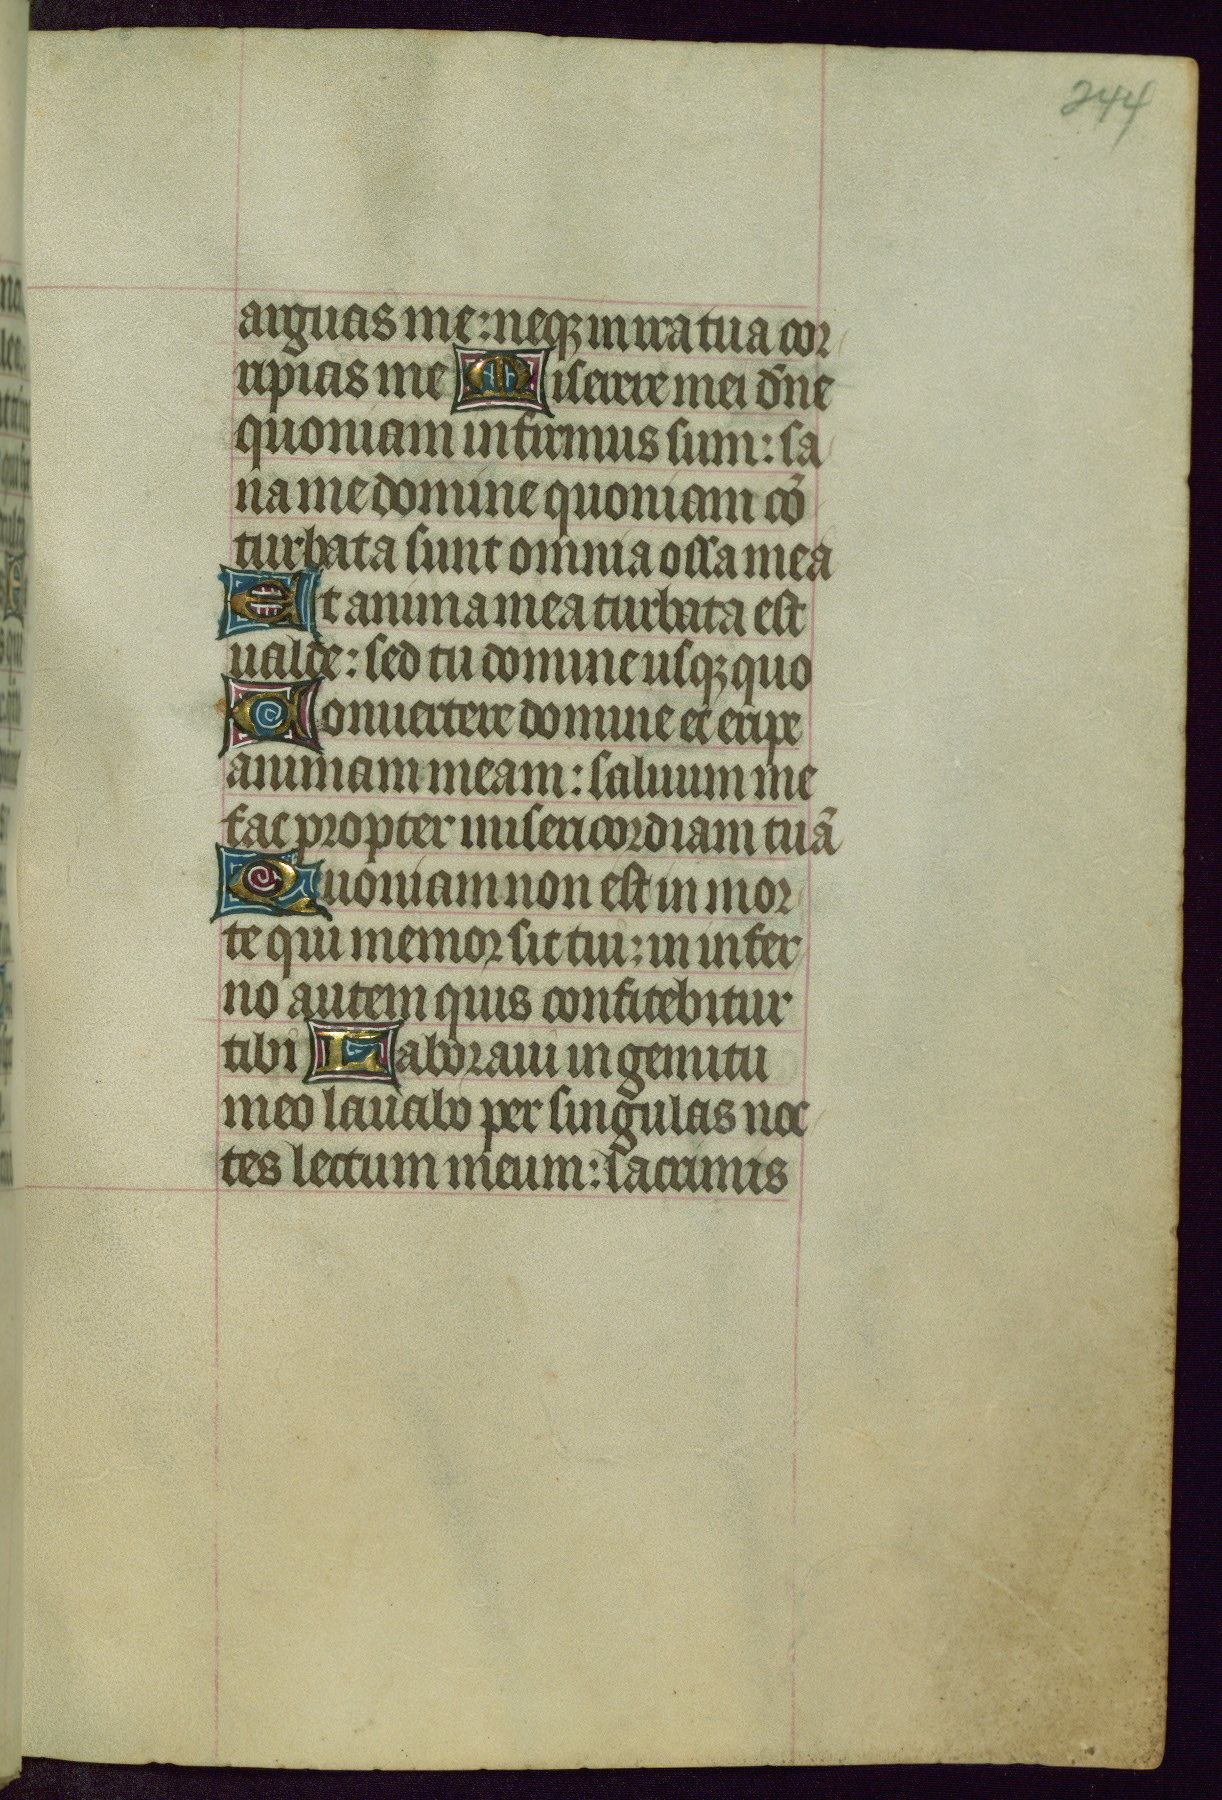 244
arguas me: neqꝫ in ira tua cor
ripias me Miserere mei dn̄e
quoniam infirmus sum: sa
na me domine quoniam cō
turbata sunt omnia ossa mea
Et anima mea turbata est
ualde: sed tu domine usqꝫ quo
Conuertere domine et eripe
animam meam: saluum me
fac propter misericordiam tuā
Quoniam non est in mor
te qui memor sit tui: in infer
no autem quis confitebitur
tibi Laboraui in gemitu
meo lauabo per singulas noc
tes lectum meum: lacrimis